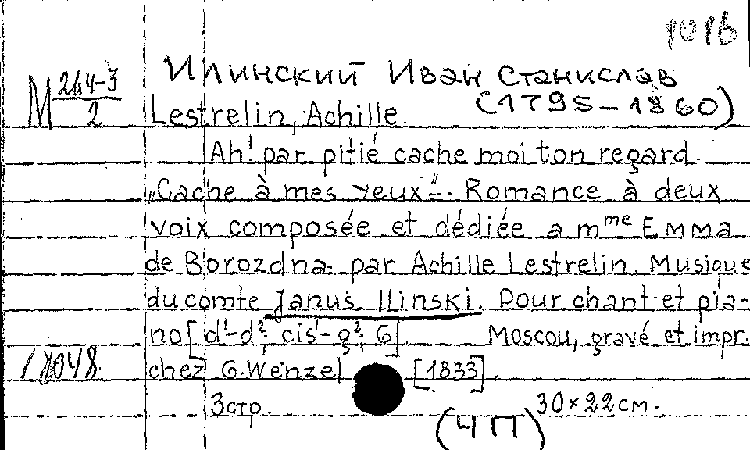 1016
Илинский Иван Станислав
М 264-3/2
Lestrelin, Achille (1795-1860)
Ah! par pitié cache moi ton regard
„Cache à mes yeux". Romance à deux
voix composée et dédiée a mme Emma
de Borozdna. par Achille Lestrelin. Musique
du comte Janus Ilinski. Pour chant et pia-
no [d¹-d²; cis¹-g²; G]. Moscou, gravé et impr.
chez G. Wenzel [1833].
3 стр. 30×22 см.
(ЧП)